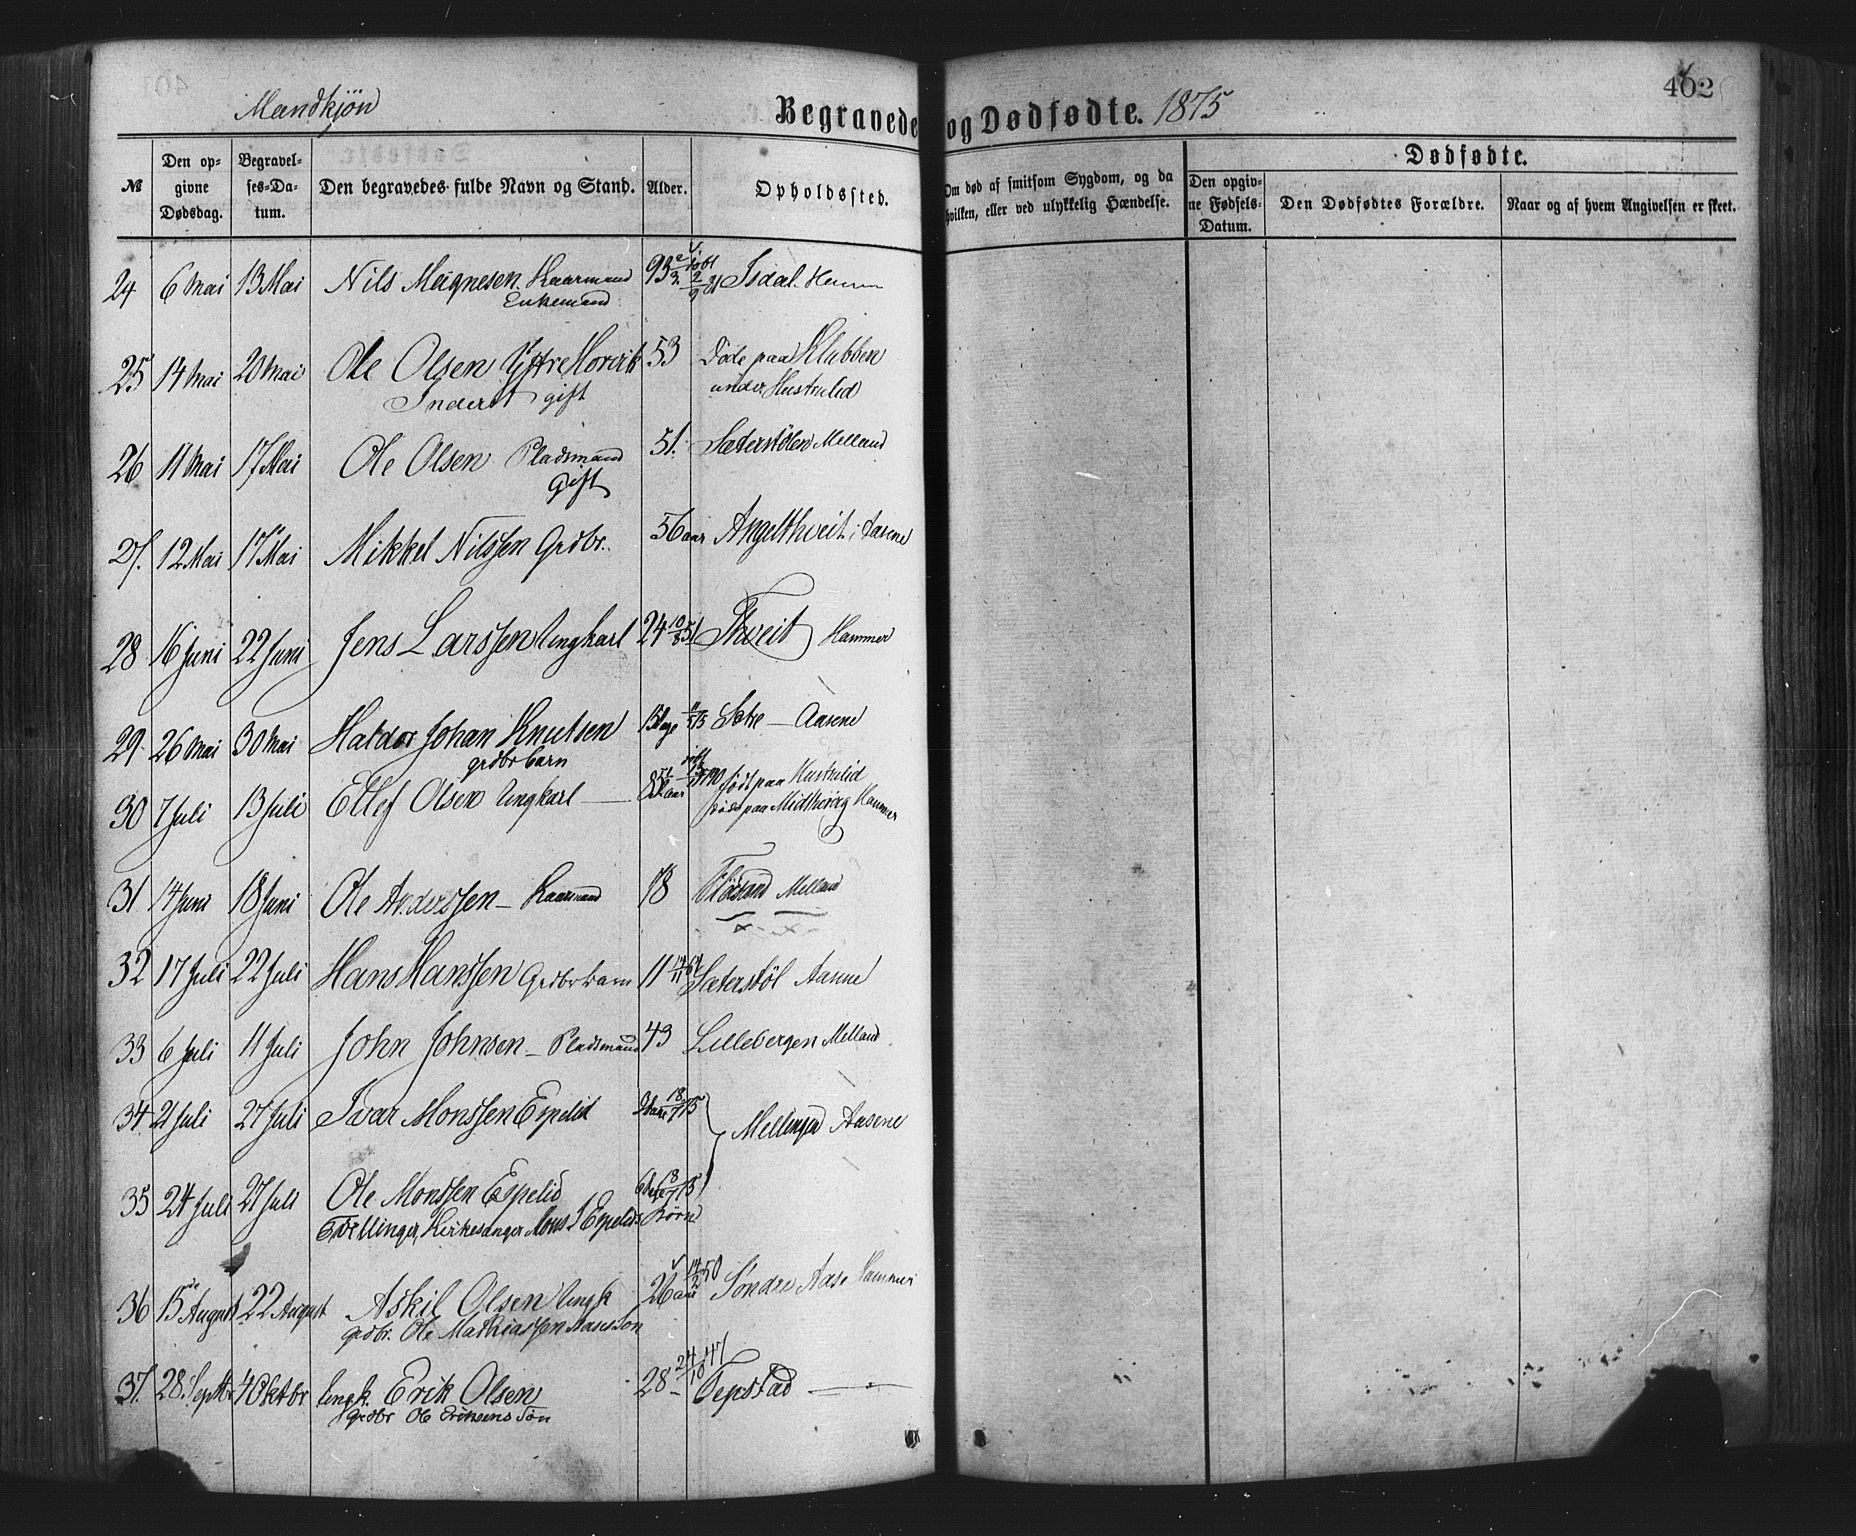 Mandkjøn
Begravede og Dødfødte. 1875
402
№
Den opgivne Dødsdag.
Begravelses-Datum.
Den begravedes fulde Navn og Stand.
Alder.
Opholdssted.
Om død af smitsom Sygdom, og da hvilken, eller ved ulykkelig Hændelse.
Dødfødte.
Den opgivne Fødsels-Datum.
Den Dødfødtes Forældre.
Naar og af hvem Angivelsen er skeet.
24 6 Mai 13 Mai Nils Magnesen Kaarmand 93 Isdal
Enkemand
25 14 Mai 20 Mai Ole Olsen Yttre Morvik 53 Døde paa Klubben
Inderst gift under Hustrulid
26 11 Mai 17 Mai Ole Olsen Pladsmand 51. Sæterstølen Melland
Gift
27. 12 Mai 17 Mai Mikkel Nilssen Grdbr. 56 aar Angelthveit i Aasene
28 16 Juni 22 Juni Jens Larssen Ungkarl 24 10/8 51 Thveit Hammer
29 26 Mai 30 Mai Haldor Johan Knutsen Sætre — Aasene
grdbr barn
30 7 Juli 13 Juli Ellef Olsen Ungkarl — født paa Hustrulid
død paa Midthoug Hammer
31 14 Juni 18 Juni Ole Anderssen — Kaarmand 78 Flösand Melland
32 17 Juli 22 Juli Hans Hanssen Grdbr barn 11 Sæterstøl Aanne
33 6 Juli 11 Juli John Johnsen — Pladsmand 43 Lillebergen Melland
34 21 Juli 27 Juli Ivar Monssen Espelid 18/7 75 Mellingen Aasene
35 24 Juli 27 Juli Ole Monssen Espelid 18/7 75
Tvillinger, Kirkesanger Mons I Espelids Børn
36 15de August 22 August Askil Olsen Ungk 26 aar 14/2 50 Søndre Aase Hammer
grdbr. Ole Mathiassen Aases Søn
37. 28. Septbr 4 Oktbr Ungk. Erik Olsen 28 — 24/10 47 Tepstad — " —
Grdbr Ole Eriksens Søn